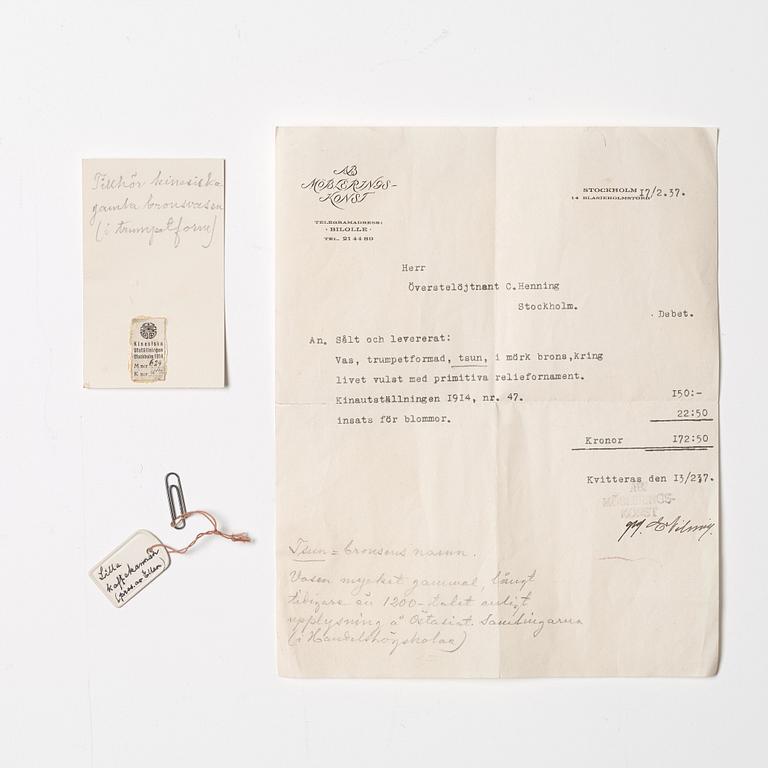 Tillhör kinesiska
gamla bronsvasen
(i trumpetform)
Kinesiska
Utställningen
Göteborg 1914
M nr
K nr
Lilla
kaffekannan
(pres. av Ellen)
AB
MÖBLERINGS-
KONST
TELEGRAMADRESS:
· BILOLLE ·
TEL. 21 44 80
STOCKHOLM 17/2.37.
14 BLASIEHOLMSTORG
Herr
Överstelöjtnant C.Henning
Stockholm.
Debet.
An. Sålt och levererat:
Vas, trumpetformad, tsun, i mörk brons,kring
livet vulst med primitiva reliefornament.
Kinautställningen 1914, nr. 47. 150:-
insats för blommor. 22:50
Kronor 172:50
Kvitteras den 13/237.
AB
MÖBLERINGS-
KONST
Tsun = bronsens namn.
Vasen mycket gammal, långt
tidigare än 1200-talet enligt
upplysning å Ostasiat. Samlingarna
(i Handelshögskolan)